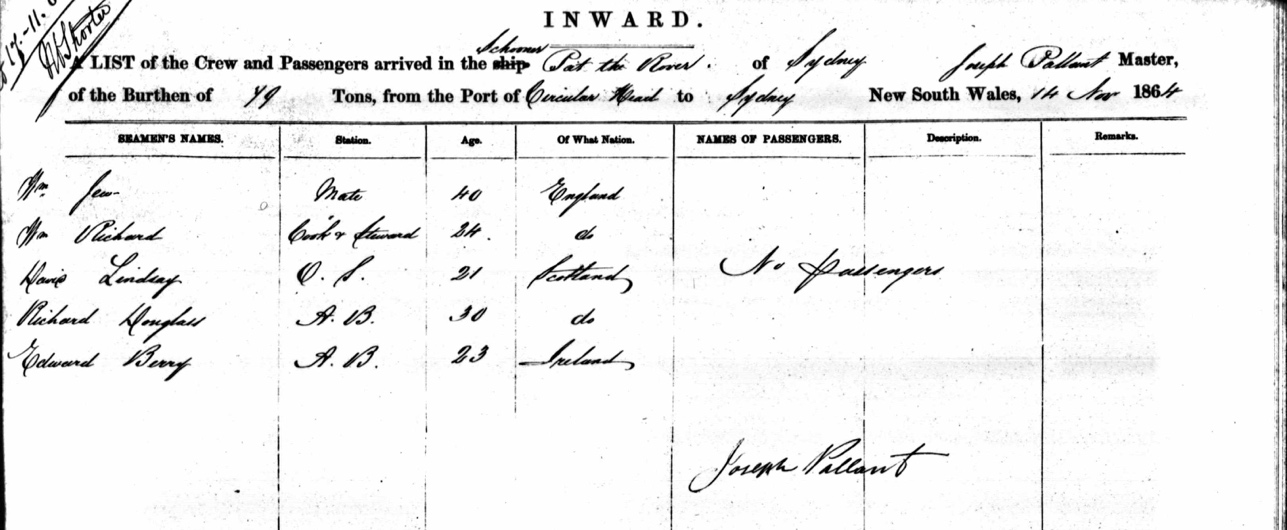 INWARD.
A LIST of the Crew and Passengers arrived in the ship Schooner Pat the Rover. of Sydney Joseph Pallant Master,
of the Burthen of 79 Tons, from the Port of Circular Head to Sydney New South Wales, 14 Nov 1864
SEAMEN'S NAMES. Station. Age. Of What Nation. NAMES OF PASSENGERS. Description. Remarks.
Wm Jew Mate 40 England
Wm Richard Cook & Steward 24. do
David Lindsay O. S. 21 Scotland No passengers
Richard Douglass A. B. 30 do
Edward Berry A. B. 23 Ireland
Joseph Pallant